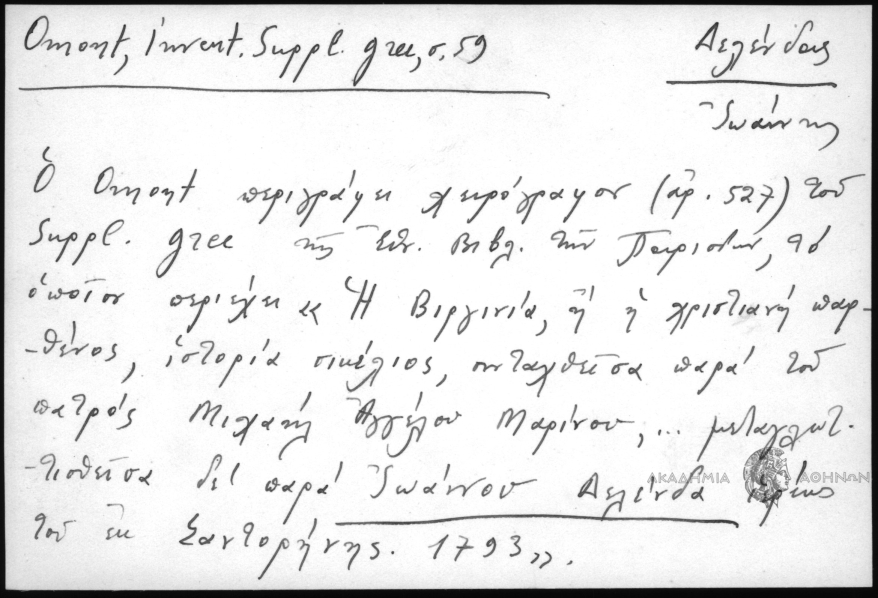 Omont, Invent. Suppl. grec, σ. 59
Δελένδας
Ἰωάννης
Ὁ Omont περιγράφει χειρόγραφον (ἀρ. 527) τοῦ
Suppl. grec τῆς Ἐθν. Βιβλ. τῶν Παρισίων, τὸ
ὁποῖον περιέχει « Ἡ Βιργινία, ἤ ἡ χριστιανή παρ-
-θένος, ἱστορία σικέλιος, συνταχθεῖσα παρά τοῦ
πατρός Μιχαήλ Ἀγγέλου Μαρίνου, ... μεταγλωτ-
-τισθεῖσα δέ παρά Ἰωάννου Δελένδα ἱερέως
τοῦ ἐκ Σαντορήνης. 1793».
ΑΚΑΔΗΜΙΑ ΑΘΗΝΩΝ